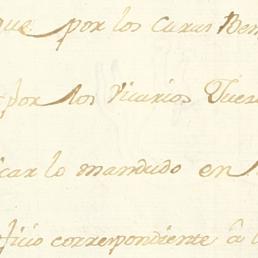 que por los Curas Ben
por los Vicarios Fuer
icar lo mandado en
ficio correspondiente â